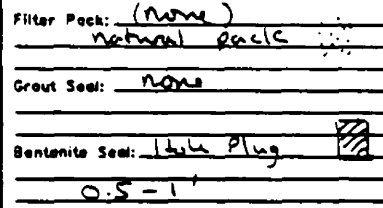 Filter Pack: (none)
natural pack
Grout Seal: none
Bentonite Seal: Hole Plug
0.5 - 1'